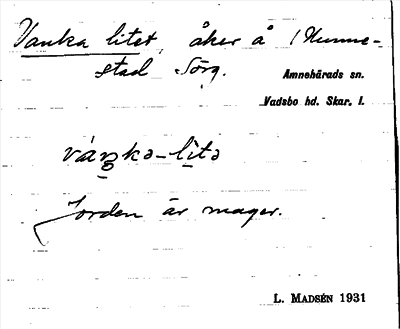 Vanka litet, åker å 1 Nunne-
stad Sörg.
Amnehärads sn.
Vadsbo hd. Skar. l.
váŋkə-lìtə
Jorden är mager.
L. MADSÉN 1931